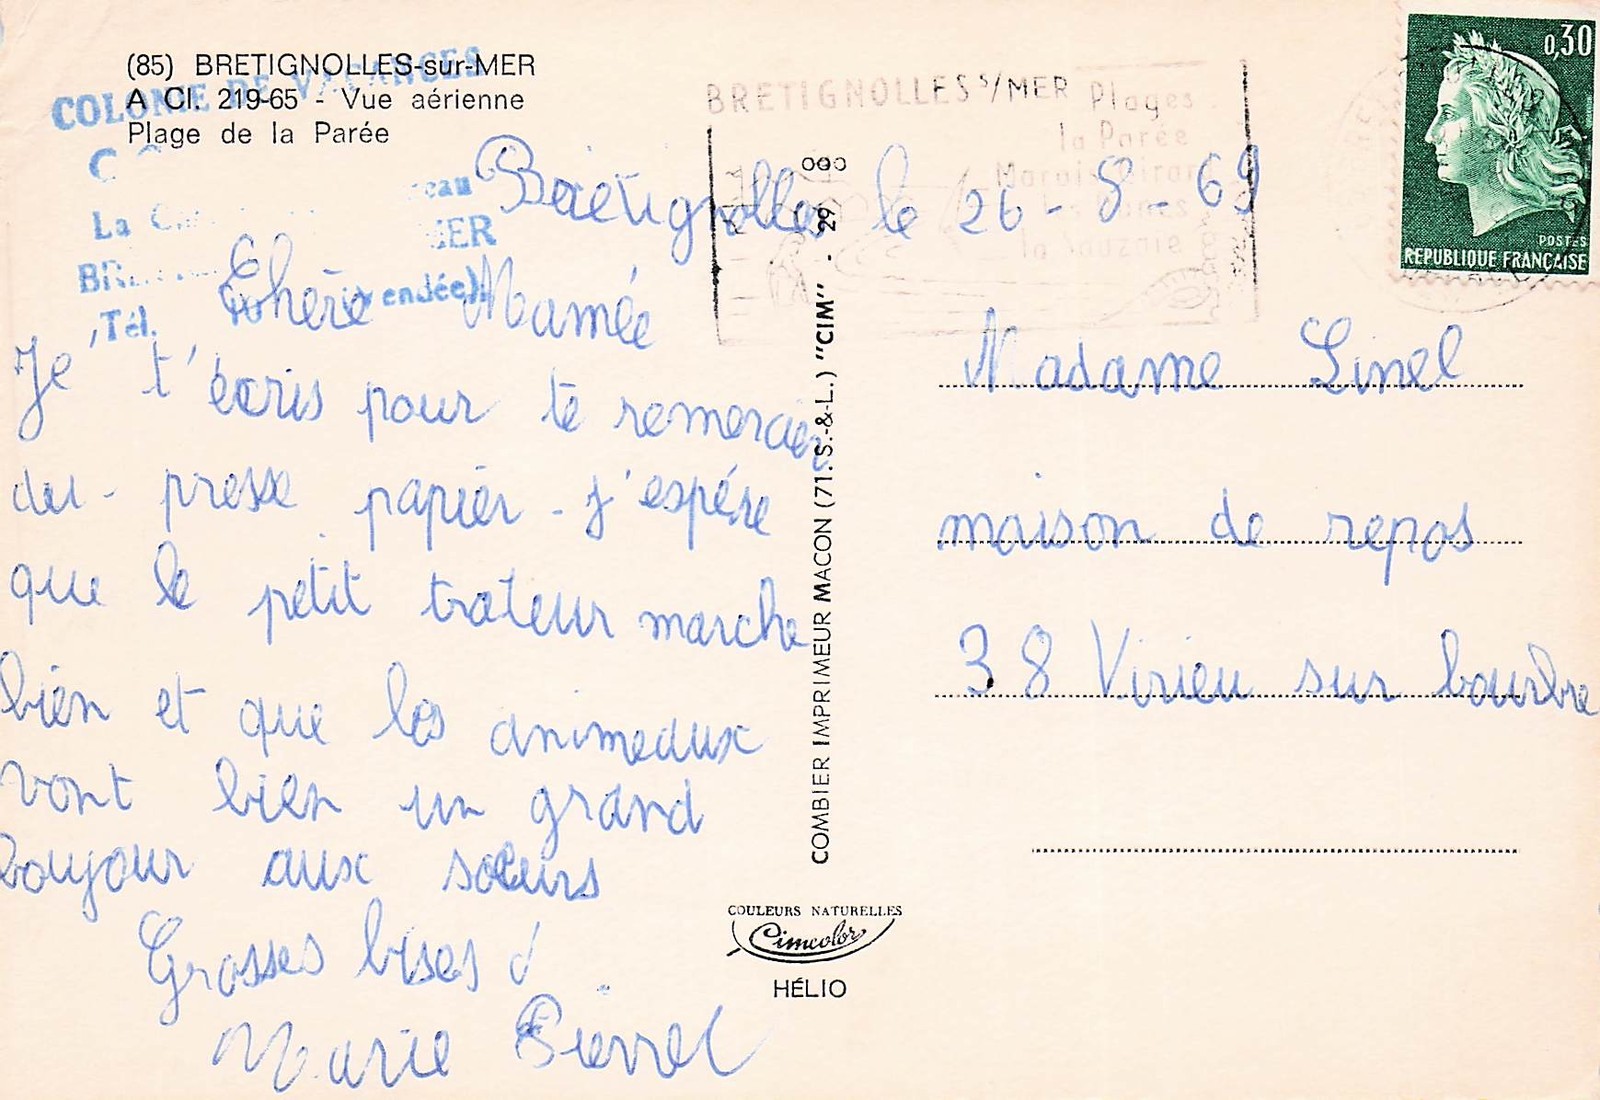 (85) BRETIGNOLLES-sur-MER
A Cl. 219-65 - Vue aérienne
Plage de la Parée
COLONIE DE VACANCES
La
MER
(Vendée)
Tél.
BRETIGNOLLES S/MER Plages
la Parée
Marais Girard
les Dunes
la Sauzaie
0,30
POSTES
REPUBLIQUE FRANÇAISE
Bretignolles le 26-8-69
Chère Mamée
Je t'écris pour te remercier
du - presse papier - j'espére
que le petit trateur marche
bien et que les animeaux
vont bien un grand
Boujour aux soeurs
Grosses bises d
Marie Pierre
COMBIER IMPRIMEUR MACON (71.S.-&-L.) "CIM" - 29
COULEURS NATURELLES
Cimcolor
HÉLIO
Madame Linel
maison de repos
38 Virieu sur bourbre